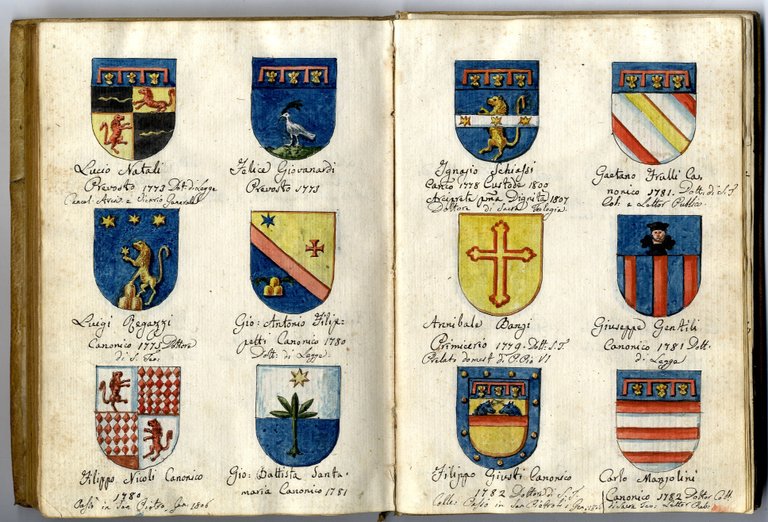 Lucio Natali
Prevosto 1773 Dot. di Legge
e Vicario Generale
Felice Giovanardi
Prevosto 1773
Luigi Regazzi
Canonico 1775 Dottore
di S. Teo.
Gio: Antonio Filip=
petti Canonico 1780
Dott. di Legge
Filippo Nicoli Canonico
1780
Passò in San Pietro, Gen. 1806
Gio: Battista Santa=
maria Canonico 1781
Ignazio Schiassi
Canco 1778 Custode 1800
Arciprete Dignità 1807
Dottore di Sacra Teologia
Gaetano Fralli Ca=
nonico 1781. Dott. di S. T.
Col. e Lettor Publico
Annibale Banzi
Primicerio 1779 Dott. S. T.
Prelato domest. di P. Pio VI
Giuseppe Gentili
Canonico 1781 Dott.
di Legge
Filippo Giusti Canonico
1782 Dottore di S. T.
Coll. Passò in San Pietro
Carlo Manzolini
Canonico 1782 Dottor Coll.